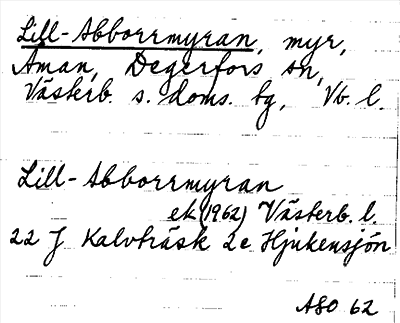 Lill-Abborrmyran, myr,
Åman, Degerfors sn,
Västerb. s. doms. tg, Vb. l.
Lill-Abborrmyran
ek (1962) Västerb. l.
22 J Kalvträsk 2e Hjukensjön
ASO 62